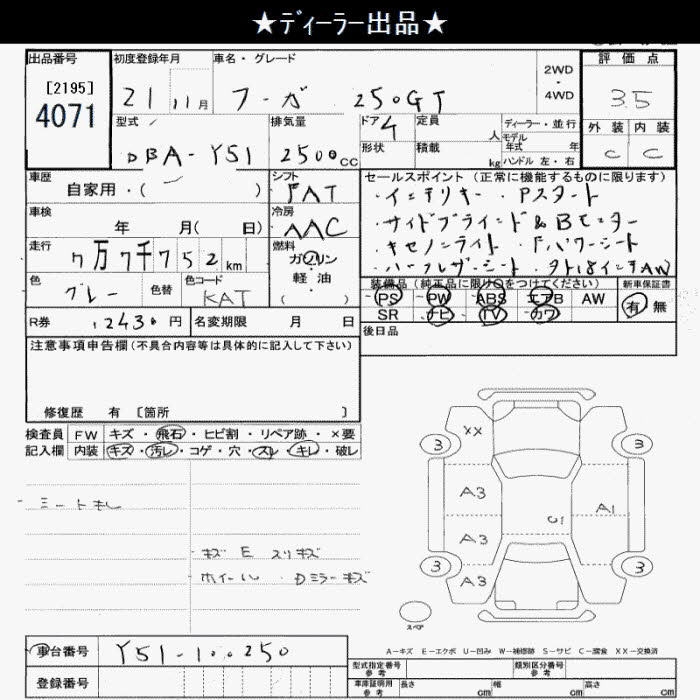 ★ディーラー出品★
出品番号 初度登録年月 車名・グレード 評価点
[2195]
4071
21 11月 フーガ 250GT 2WD・4WD 3.5
型式 排気量 ドア 定員 ディーラー・並行 外装 内装
DBA-Y51 2500cc 4 人 モデル年式 年 C C
形状 積載 kg ハンドル 左・右
車歴 シフト セールスポイント(正常に機能するものに限ります)
自家用・( FAT ・インテリキー・Pスタート
車検 冷房 ・サイドブラインド&Bモニター
年 月( 日) AAC ・キセノンライト・Fパワーシート
走行 燃料 ・ハーフレザーシート・外18インチAW
7万7千752km ガソリン
軽油
( )
色 色替 色コード 装備品(純正品に限り○をつけてください) 新車保証書
グレー KAT PS PW ABS エアB AW 有 無
SR ナビ TV カワ
R券 12430円 名変期限 月 日 後日品
注意事項申告欄(不具合内容等は具体的に記入して下さい)
修復歴 有 [箇所 ]
検査員 FW キズ・飛石・ヒビ割・リペア跡・×要
記入欄 内装 キズ・汚レ・コゲ・穴・スレ・キレ・破レ
XX
3 3
A3 A1
A3
3 3
A3
キズ E スリキズ
ホイール・Dミラーキズ
スペア
A-キズ E-エクボ U-凹み W-補修跡 S-サビ C-腐食 XX-交換済
車台番号 Y51-100250
型式指定番号 参考 類別区分番号 参考
登録番号 車庫証明用 参考 長さ cm 幅 cm 高さ cm